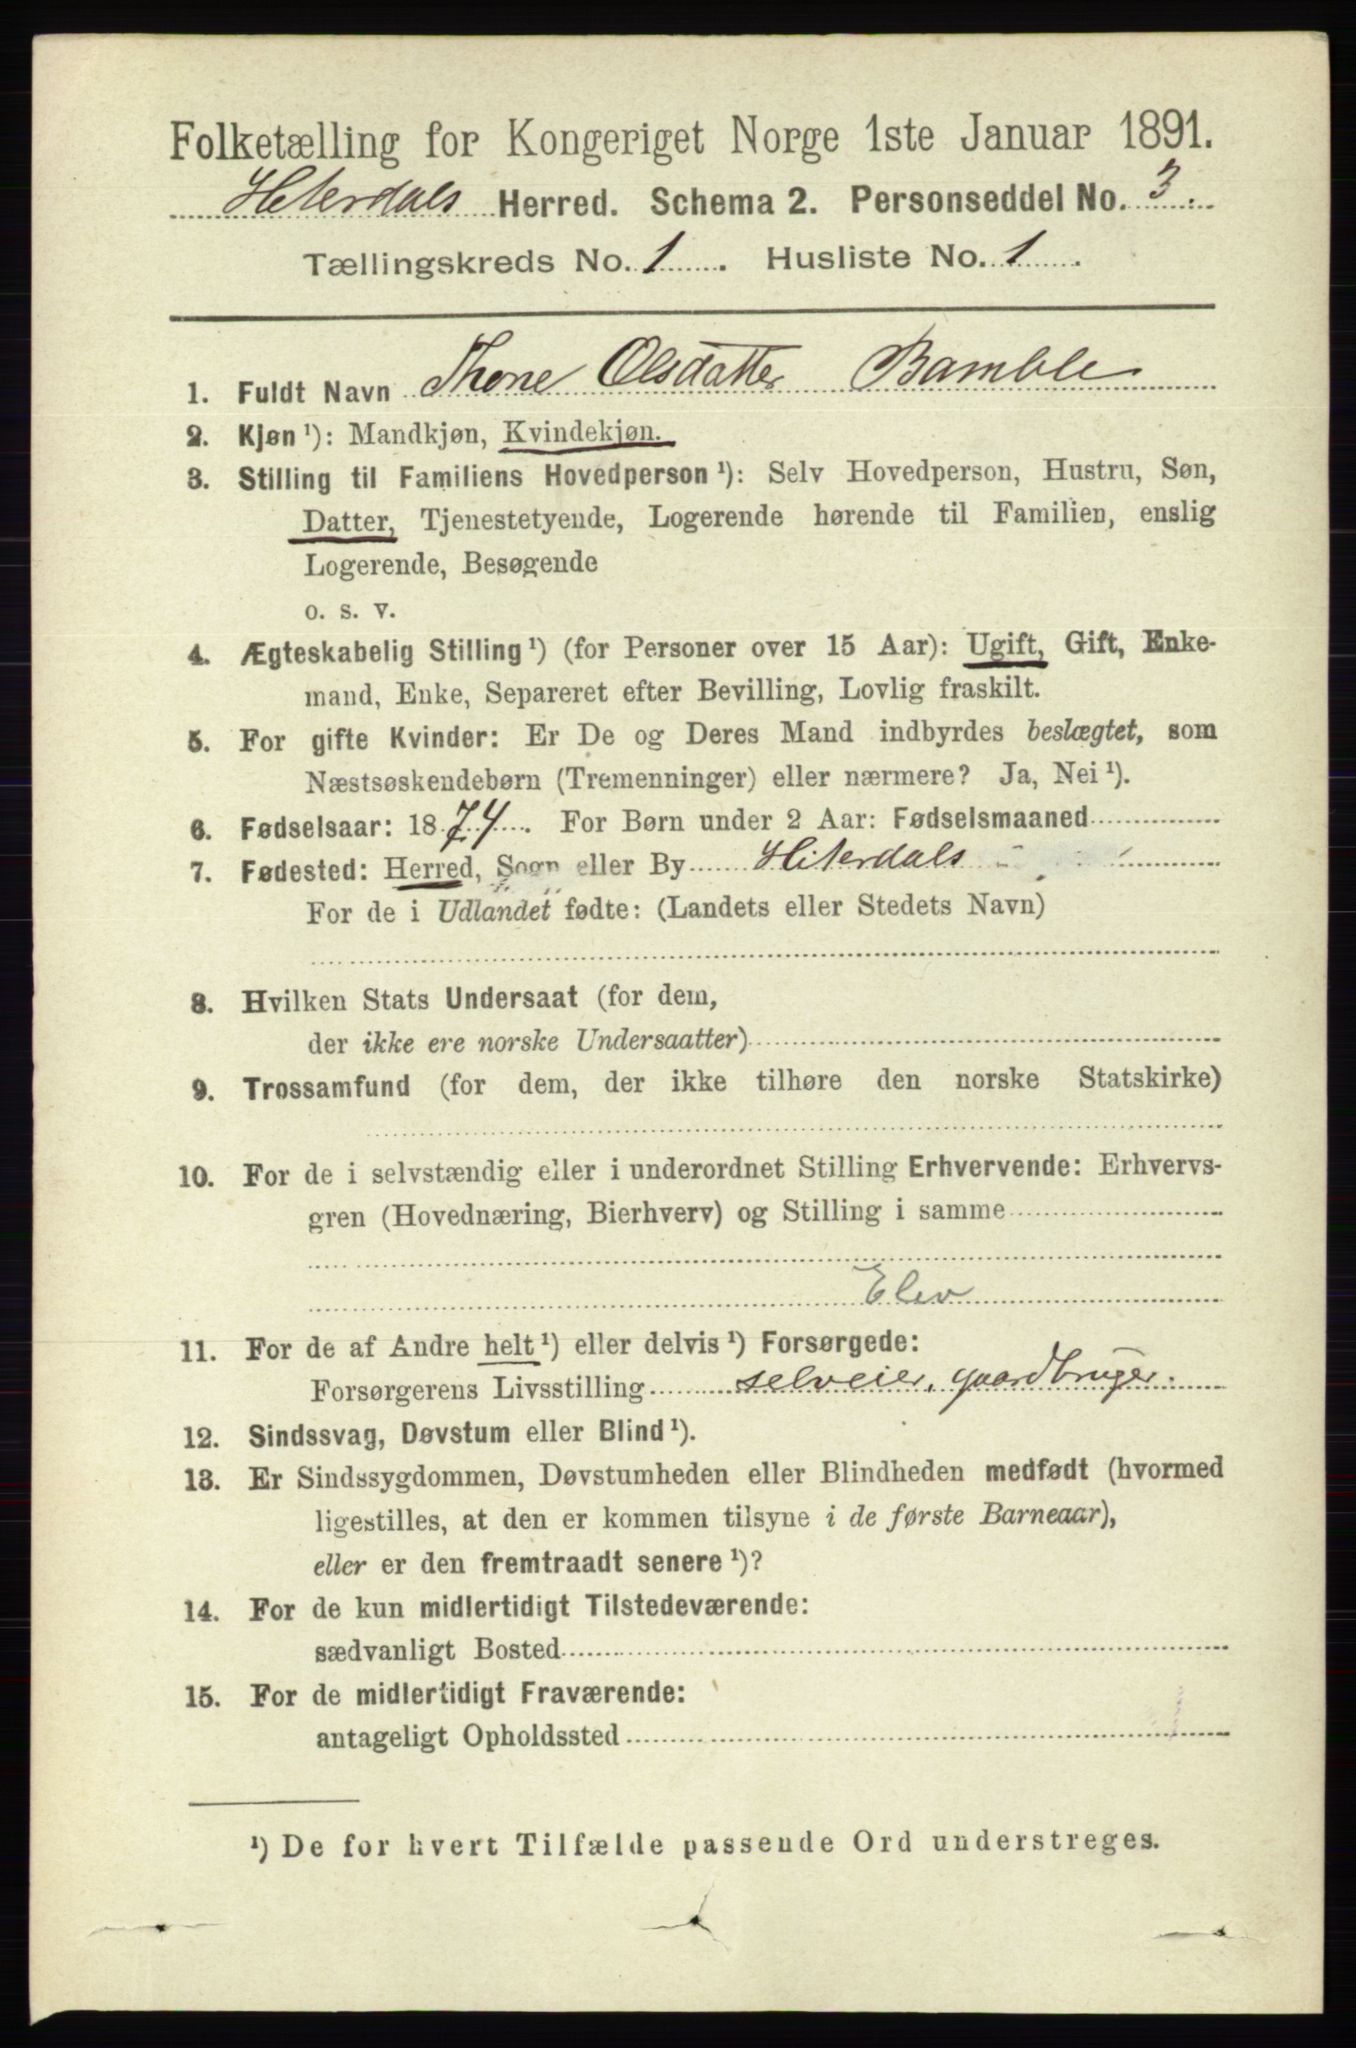 Folketælling for Kongeriget Norge 1ste Januar 1891.
Hiterdals Herred. Schema 2. Personseddel No. 3.
Tællingskreds No. 1. Husliste No. 1.
1. Fuldt Navn Thone Olsdatter Bamble
2. Kjøn ¹): Mandkjøn, Kvindekjøn.
3. Stilling til Familiens Hovedperson ¹): Selv Hovedperson, Hustru, Søn,
Datter, Tjenestetyende, Logerende hørende til Familien, enslig
Logerende, Besøgende
o. s. v.
4. Ægteskabelig Stilling ¹) (for Personer over 15 Aar): Ugift, Gift, Enke-
mand, Enke, Separeret efter Bevilling, Lovlig fraskilt.
5. For gifte Kvinder: Er De og Deres Mand indbyrdes beslægtet, som
Næstsøskendebørn (Tremenninger) eller nærmere? Ja, Nei ¹).
6. Fødselsaar: 1874. For Børn under 2 Aar: Fødselsmaaned
7. Fødested: Herred, Sogn eller By Hiterdals
For de i Udlandet fødte: (Landets eller Stedets Navn)
8. Hvilken Stats Undersaat (for dem,
der ikke ere norske Undersaatter)
9. Trossamfund (for dem, der ikke tilhøre den norske Statskirke)
10. For de i selvstændig eller i underordnet Stilling Erhvervende: Erhvervs-
gren (Hovednæring, Bierhverv) og Stilling i samme
Elev
11. For de af Andre helt ¹) eller delvis ¹) Forsørgede:
Forsørgerens Livsstilling selveier, gaardbruger.
12. Sindssvag, Døvstum eller Blind ¹).
13. Er Sindssygdommen, Døvstumheden eller Blindheden medfødt (hvormed
ligestilles, at den er kommen tilsyne i de første Barneaar),
eller er den fremtraadt senere ¹)?
14. For de kun midlertidigt Tilstedeværende:
sædvanligt Bosted
15. For de midlertidigt Fraværende:
antageligt Opholdssted
¹) De for hvert Tilfælde passende Ord understreges.